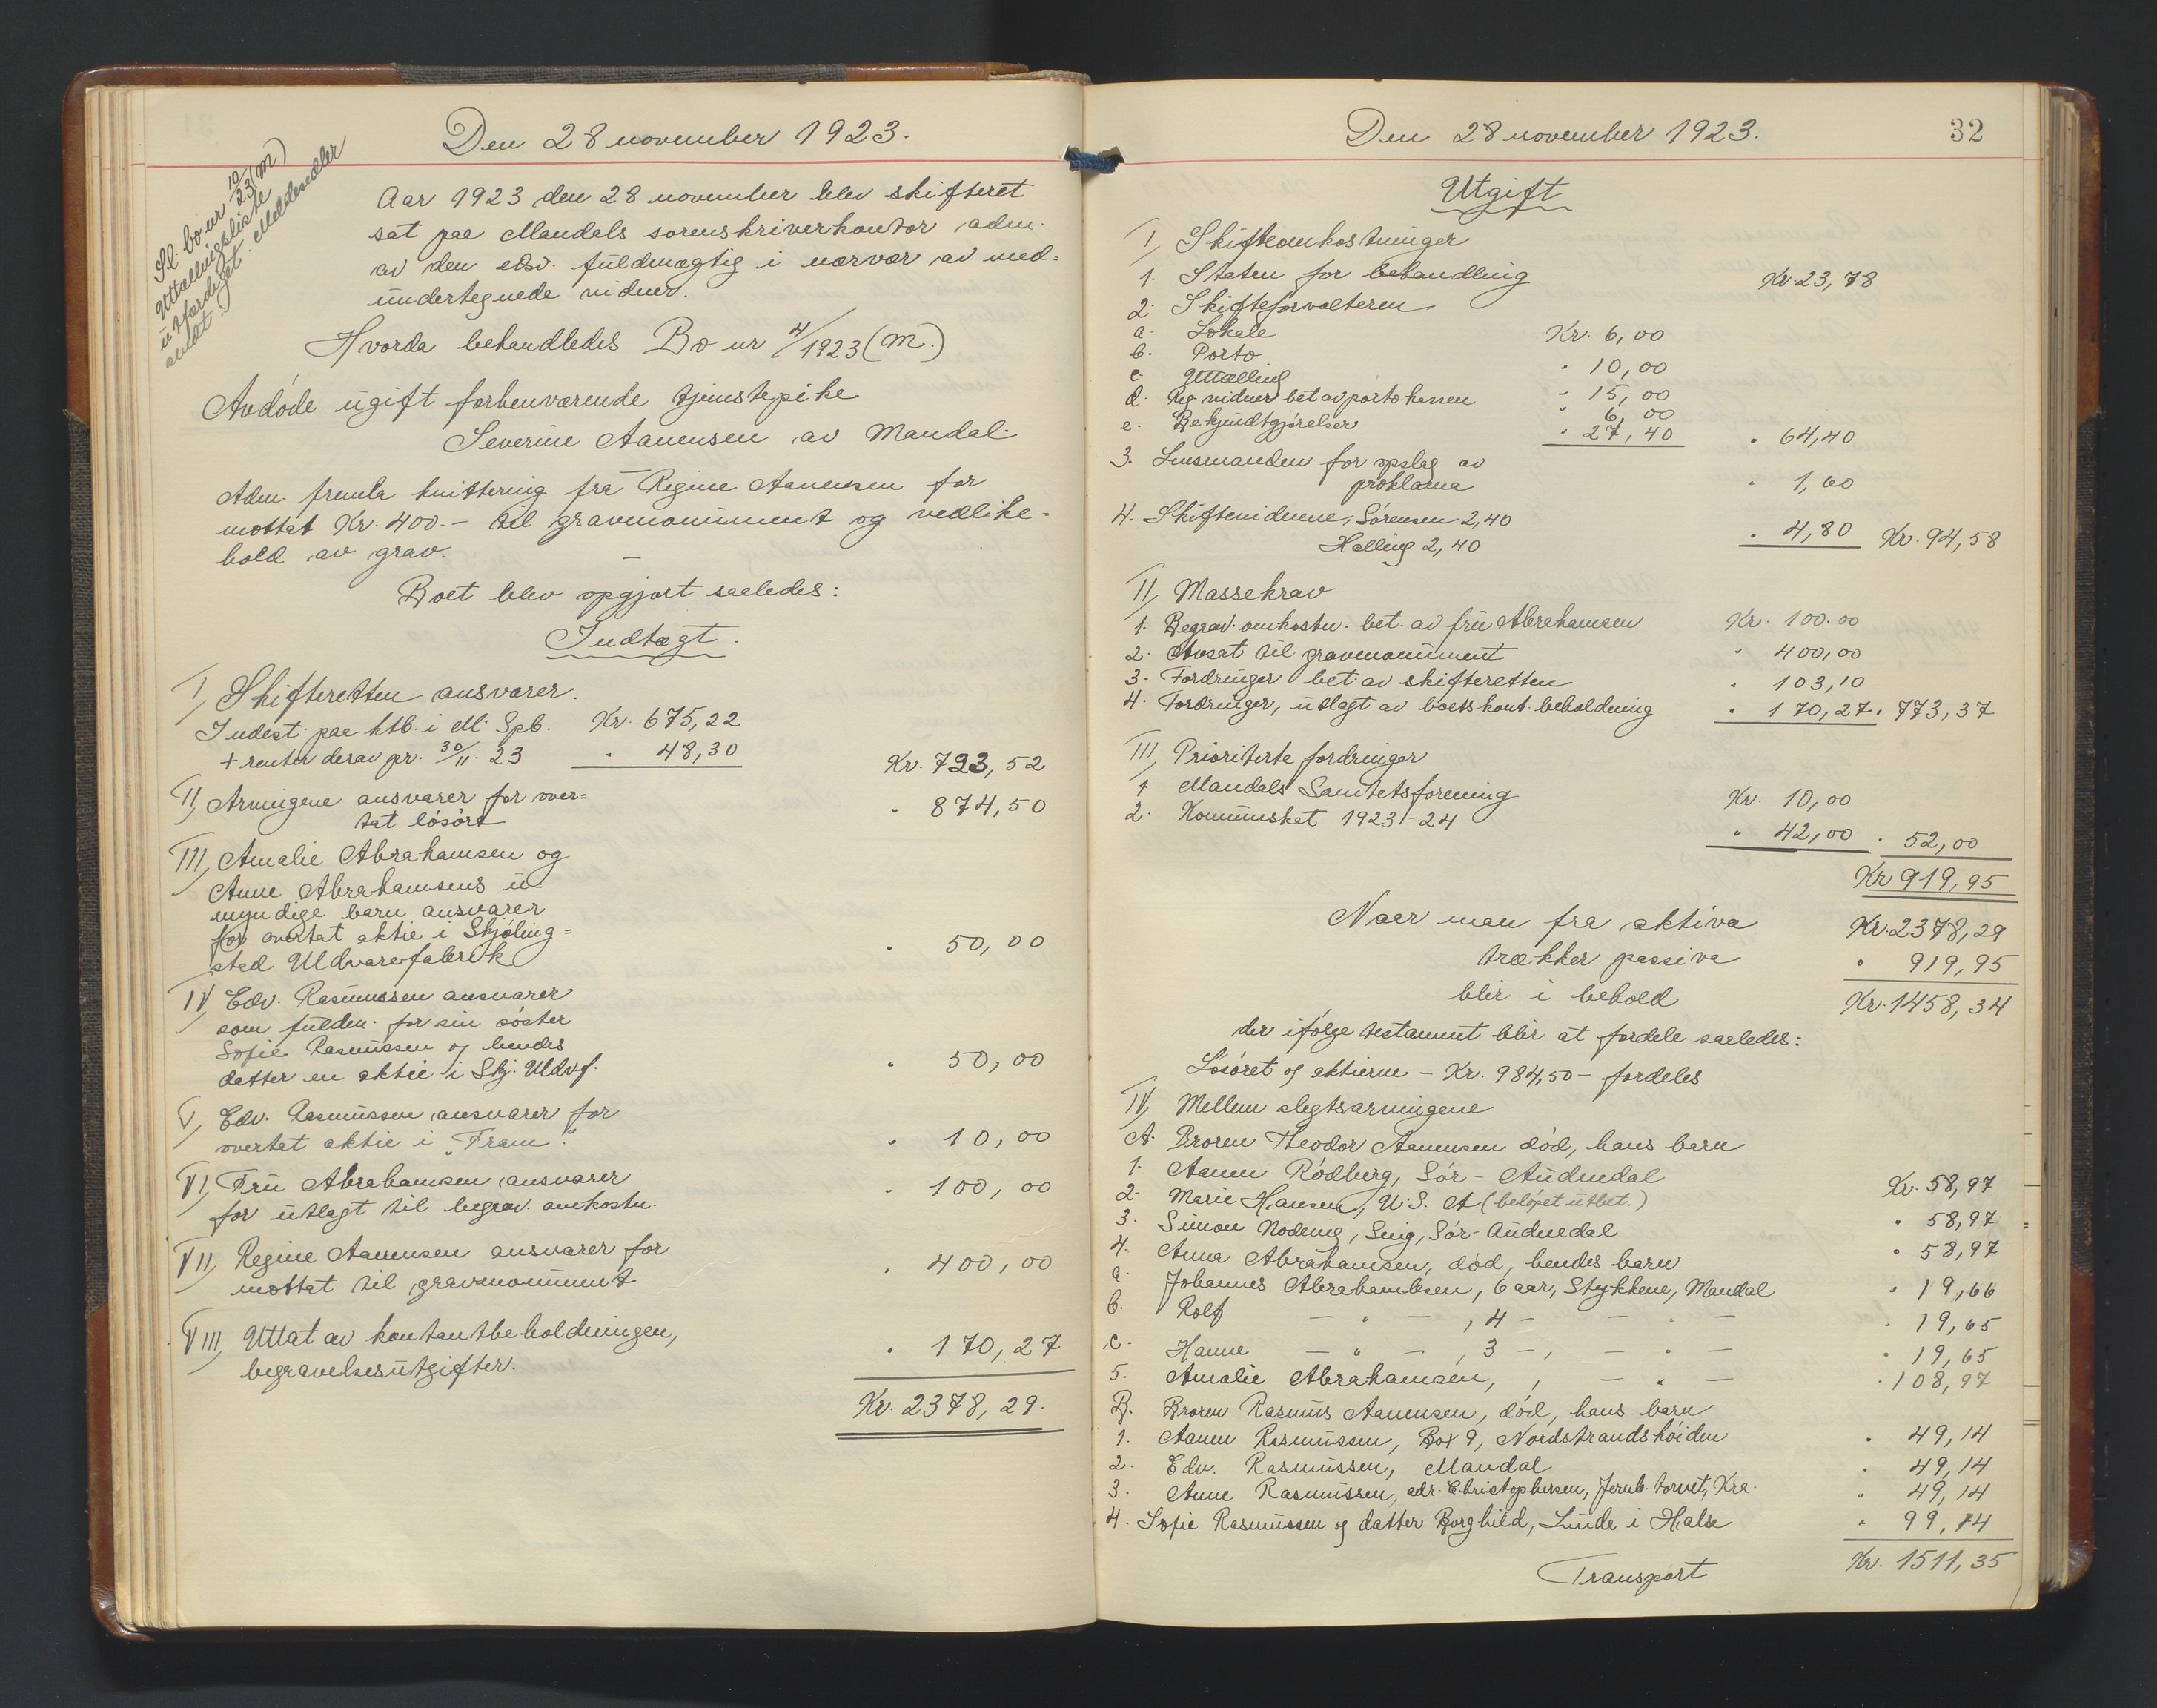 Den 28 november 1923.
Sl. bo nr 10/23 (m)
Uttællingsliste
utfærdiget. Meldesedler
sendt.
Aar 1923 den 28 november blev skifteret
sat paa Mandals sorenskriverkontor adm.
av den edsv. fuldmægtig i nærvær av med-
undertegnede vidner.
Hvorda behandledes Bo nr 4/1923 (m.)
Avdøde ugift forhenværende tjenstepike
Severine Aanensen av Mandal.
Adm. fremla kvittering fra Regine Aanensen for
mottat Kr. 400.- til gravmonument og vedlike-
hold av grav. —
Boet blev opgjort saaledes:
Indtægt.
I, Skifteretten ansvarer.
Indest. paa ktb. i M. Spb. Kr. 675,22
+ renter derav pr. 30/11. 23 " 48,30 Kr. 723,52
II, Arvingene ansvarer for over=
tat løsøre " 874,50
III, Amalie Abrahamsen og
Anne Abrahamsens u-
myndige barn ansvarer
for overtat aktie i Skjøling=
stad Uldvarefabrik " 50,00
IV, Edv. Rasmussen ansvarer
som fuldm. for sin søster
Sofie Rasmussen og hendes
datter en aktie i Skj. Uldvf. " 50,00
V, Edv. Rasmussen ansvarer for
overtat aktie i "Fram". " 10,00
VI, Fru Abrahamsen ansvarer
for utlagt til begrav. omkostn. " 100,00
VII, Regine Aanensen ansvarer for
mottat til gravmonument " 400,00
VIII, Uttat av kontantbeholdningen,
begravelsesutgifter. " 170,27
Kr. 2378,29.
Den 28 november 1923. 32
Utgift
I, Skifteomkostninger
1. Staten for behandling Kr. 23,78
2. Skifteforvalteren
a. Lokale Kr. 6,00
b. Porto " 10,00
c. Uttælling " 15,00
d. Reg. vidner bet av portokassen " 6,00
e. Bekjendtgjørelser " 27,40 " 64,40
3. Lensmanden for opslag av
proklama " 1,60
4. Skiftevidnene, Sørensen 2,40
Halling 2,40 " 4,80 Kr. 94,58
II, Massekrav
1. Begrav. omkostn. bet. av fru Abrahamsen Kr. 100.00
2. Avsat til gravmonument " 400,00
3. Fordringer bet av skifteretten " 103,10
4. Fordringer, utlagt av boets kont. beholdning " 170,27. " 773,37
III, Prioriterte fordringer
1 Mandals Sanitetsforening Kr. 10,00
2. Kommuneskat 1923-24 " 42,00 " 52,00
Kr 919,95
Naar man fra aktiva Kr. 2378,29
trækker passiva " 919,95
blir i behold Kr. 1458,34
der ifølge testament blir at fordele saaledes:
Løsøret og aktierne - Kr. 984,50 - fordeles
IV, Mellem slegtsarvingene
A. Broren Theodor Aanensen død, hans barn
1. Aanen Rødberg, Sør-Audnedal Kr. 58,97
2. Marie Hansen, U.S.A (beløpet utbet.) " 58,97
3. Simon Nodeng, Snig, Sør-Audnedal " 58,97
4. Anna Abrahamsen, død, hendes barn
a. Johannes Abrahamsen, 6 aar, Stykkene, Mandal " 19,66
b. Rolf — " — , 4 - — " — " 19,65
c. Hanne — " — , 3 -, — " — " 19,65
5. Amalie Abrahamsen, , — " — " 108,97
B. Broren Rasmus Aanensen, død, hans barn
1. Aanen Rasmussen, Box 9, Nordstrandshøiden " 49,14
2. Edv. Rasmussen, Mandal " 49,14
3. Anne Rasmussen, adr. Christophersen, Jernb. torvet, Kra. " 49,14
4. Sofie Rasmussen og datter Borghild, Linde i Halse " 99,14
Transport Kr. 1511,35